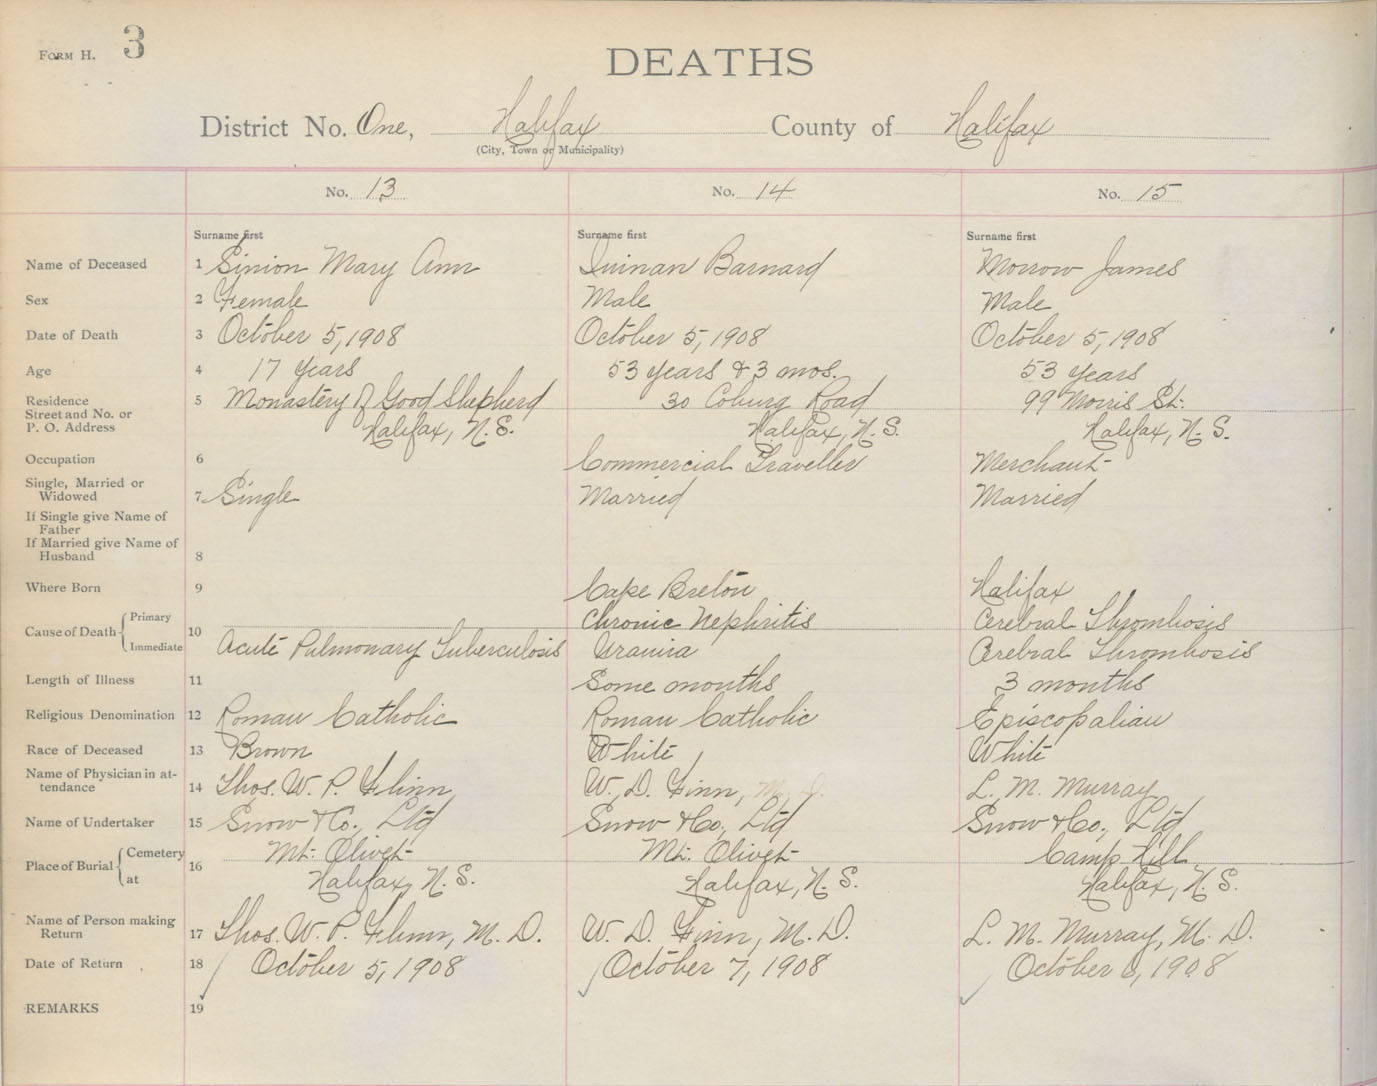 FORM H. 3
DEATHS
District No. One, Halifax County of Halifax
(City, Town or Municipality)
No. 13 No. 14 No. 15
Surname first Surname first Surname first
Name of Deceased 1 Sinion Mary Ann Quinan Barnard Morrow James
Sex 2 Female Male Male
Date of Death 3 October 5, 1908 October 5, 1908 October 5, 1908
Age 4 17 years 53 years & 3 mos. 53 years
Residence 5 Monastery of Good Shepherd 30 Coburg Road 99 Morris St.
Street and No. or
P. O. Address Halifax, N. S. Halifax, N. S. Halifax, N. S.
Occupation 6 Commercial Traveller Merchant
Single, Married or
Widowed 7 Single Married Married
If Single give Name of
Father
If Married give Name of
Husband 8
Where Born 9 Cape Breton Halifax
Cause of Death 10
Primary Chronic Nephritis Cerebral Thrombosis
Immediate Acute Pulmonary Tuberculosis Uramia Cerebral Thrombosis
Length of Illness 11 Some months 3 months
Religious Denomination 12 Roman Catholic Roman Catholic Episcopalian
Race of Deceased 13 Brown White White
Name of Physician in at-
tendance 14 Thos. W. P. Flinn W. D. Finn, M. D. L. M. Murray
Name of Undertaker 15 Snow & Co., Ltd Snow & Co, Ltd Snow & Co., Ltd
Place of Burial 16
Cemetery Mt. Olivet Mt. Olivet Camp Hill
at Halifax, N. S. Halifax, N. S. Halifax, N. S.
Name of Person making
Return 17 Thos. W. P. Flinn, M. D. W. D. Finn, M. D. L. M. Murray, M. D.
Date of Return 18 October 5, 1908 October 7, 1908 October 1908
REMARKS 19